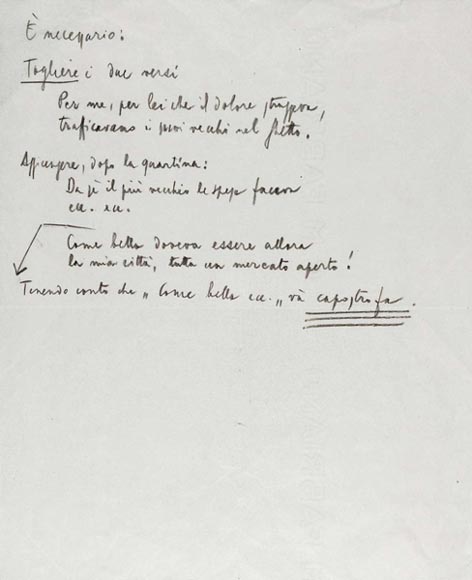 È necessario:
Togliere i due versi
Per me, per lei che il dolore struggeva,
trafficavano i suoi vecchi nel ghetto.
Aggiungere, dopo la quartina:
Da sé il più vecchio le spese faceva
ecc. ecc.
Come bella doveva essere allora
la mia città, tutta un mercato aperto!
Tenendo conto che „ Come bella ecc. „ và capostrofa.